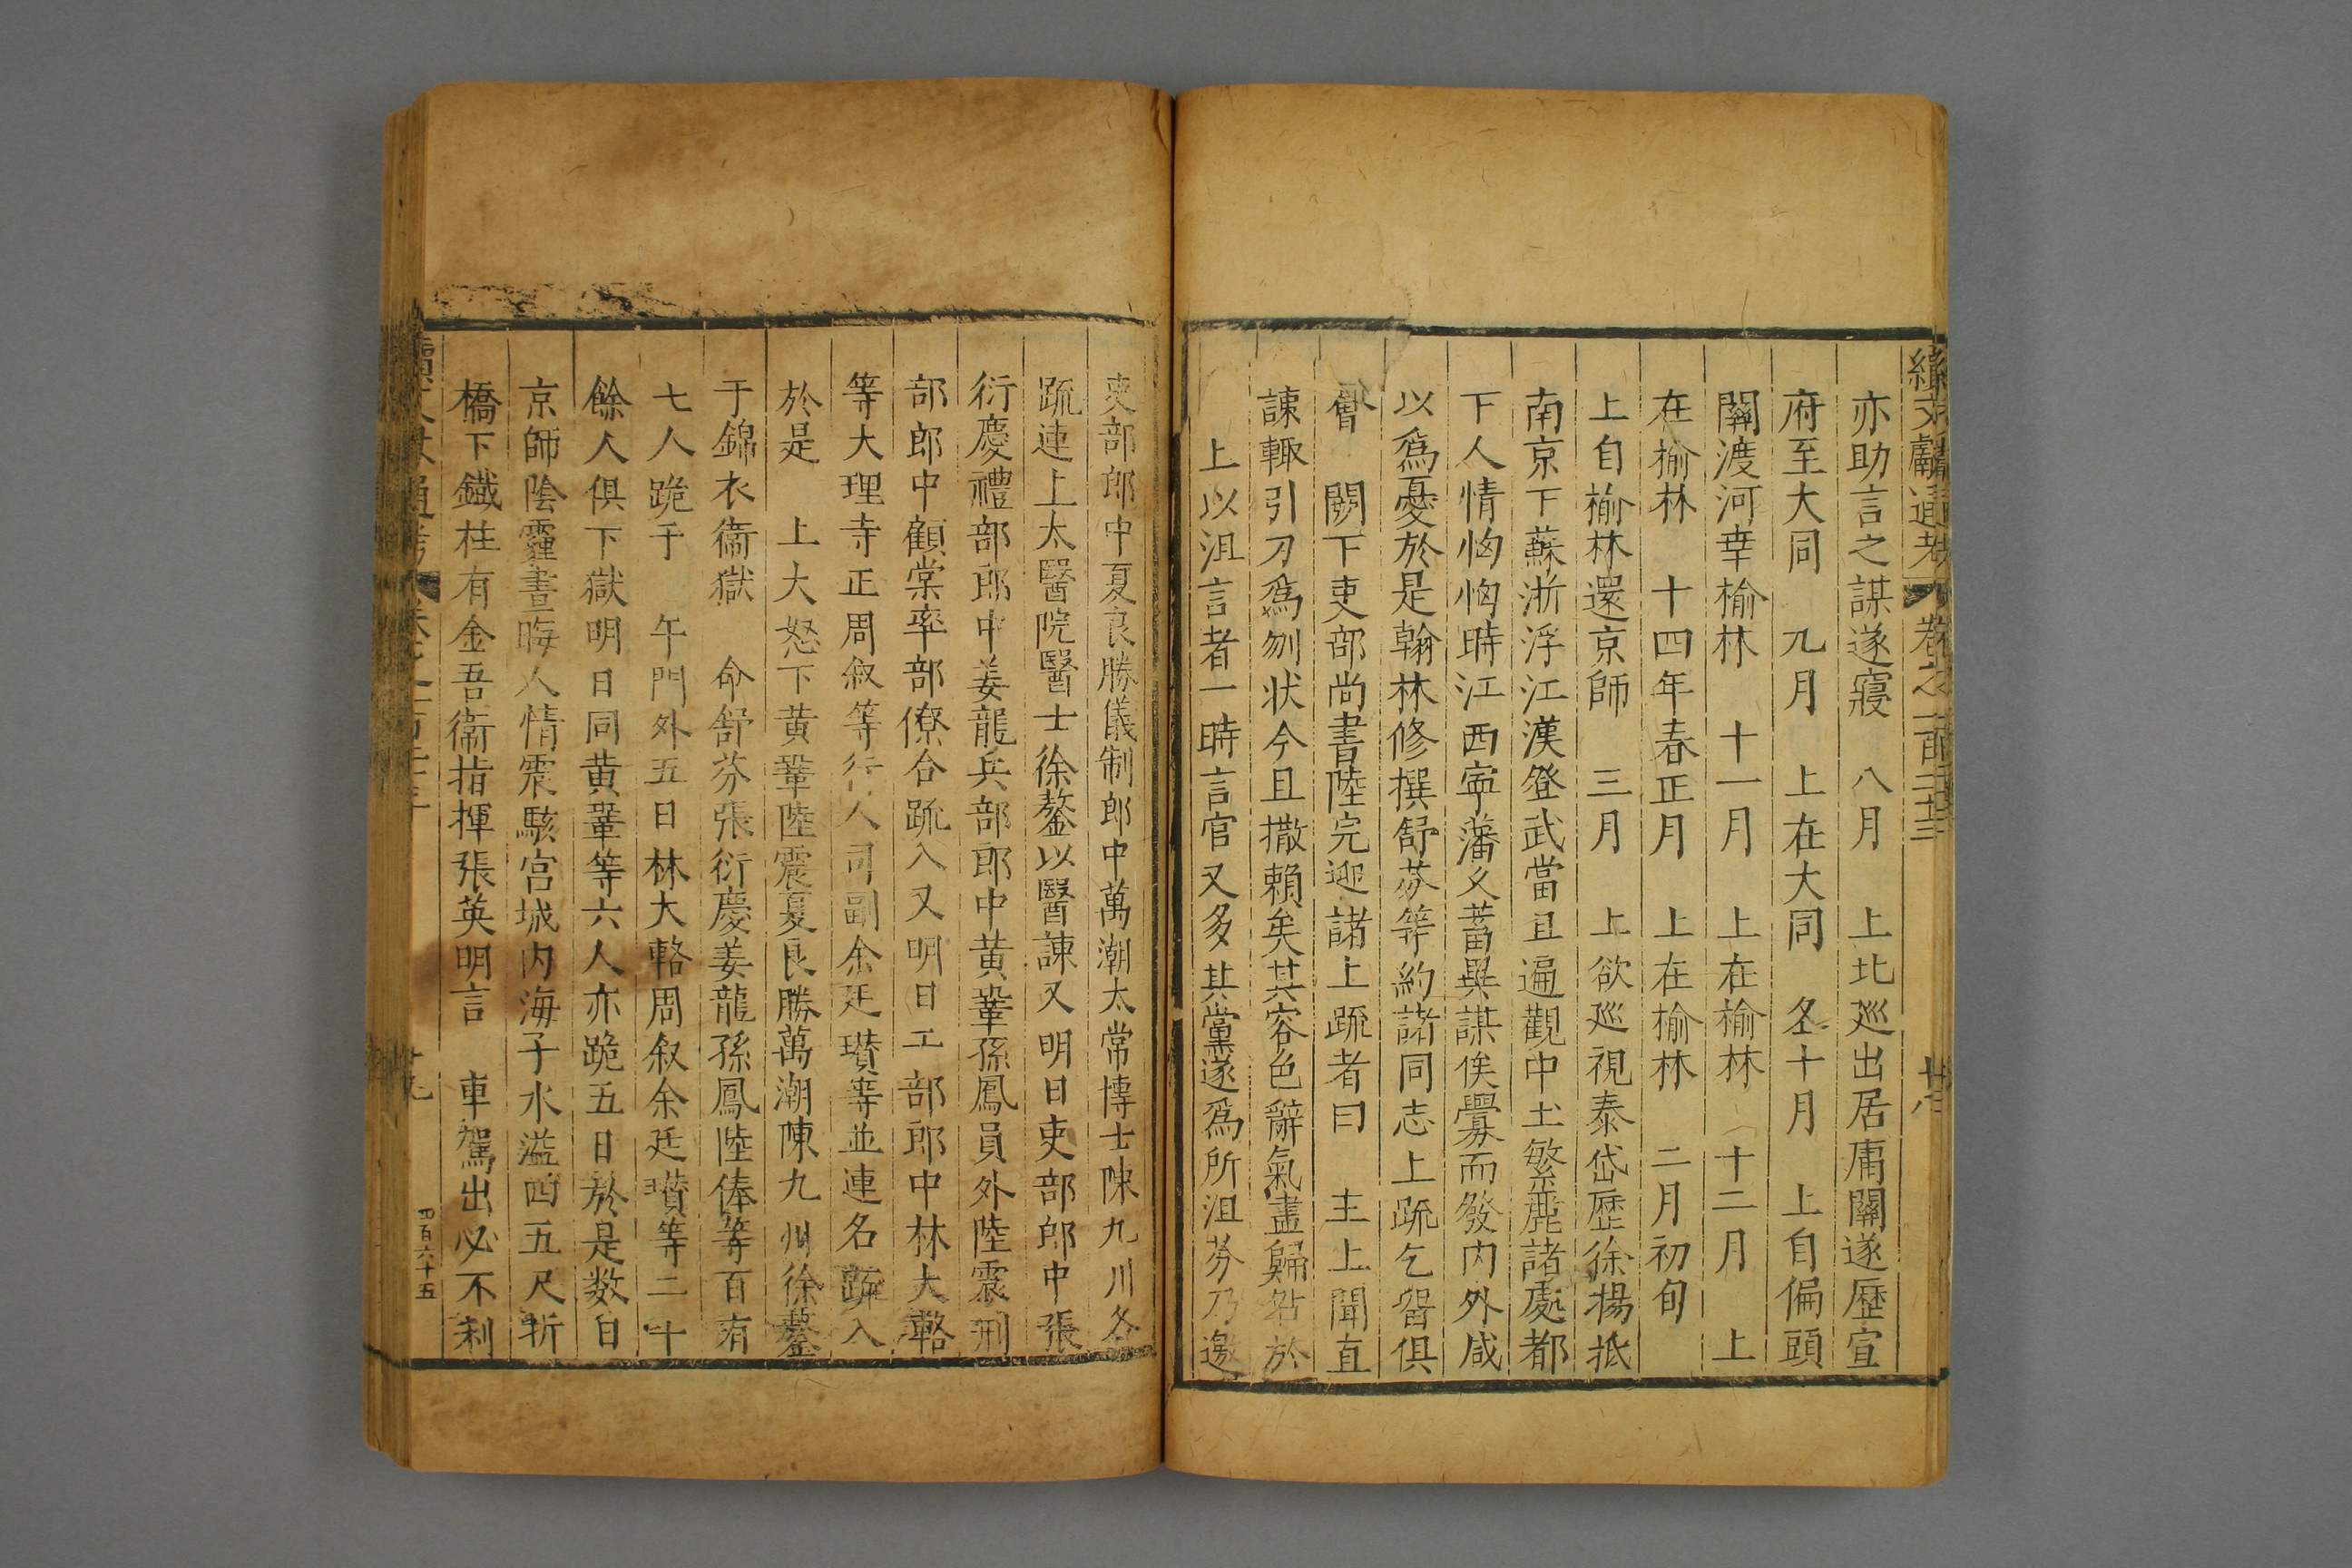 續文獻通考 卷之一百二十三 廿八
亦助言之謀遂寢 八月 上北巡出居庸關遂歷宣
府至大同 九月 上在大同 冬十月 上自偏頭
關渡河幸榆林 十一月 上在榆林 十二月 上
在榆林 十四年春正月 上在榆林 二月初旬
上自榆林還京師 三月 上欲巡視泰岱歷徐揚抵
南京下蘇浙浮江漢登武當且遍觀中土繁麗諸處都
下人情恟恟時江西寧藩久蓄異謀俟釁而發內外咸
以爲憂於是翰林修撰舒芬等約諸同志上疏乞留俱
會 闕下吏部尚書陸完迎諸上疏者曰 主上聞直
諫輒引刀爲刎狀今且撒賴矣其容色辭氣盡歸咎於
上以沮言者一時言官又多其黨遂爲所沮芬乃邀
吏部郎中夏良勝儀制郎中萬潮太常博士陳九川各
疏連上太醫院醫士徐鏊以醫諫又明日吏部郎中張
衍慶禮部郎中姜龍兵部郎中黃鞏孫鳳員外陸震刑
部郎中顧棠率部僚合疏入又明日工部郎中林大輅
等大理寺正周叙等行人司副余廷瓚等並連名疏入
於是 上大怒下黃鞏陸震夏良勝萬潮陳九川徐鏊
于錦衣衞獄 命舒芬張衍慶姜龍孫鳳陸俸等百有
七人跪于 午門外五日林大輅周叙余廷瓚等二十
餘人俱下獄明日同黃鞏等六人亦跪五日於是数日
京師陰霾晝晦人情震駭宮城內海子水溢四五尺斬
橋下鐵柱有金吾衞指揮張英明言 車駕出必不利
通考 卷之一百二十三 廿九 四百六十五